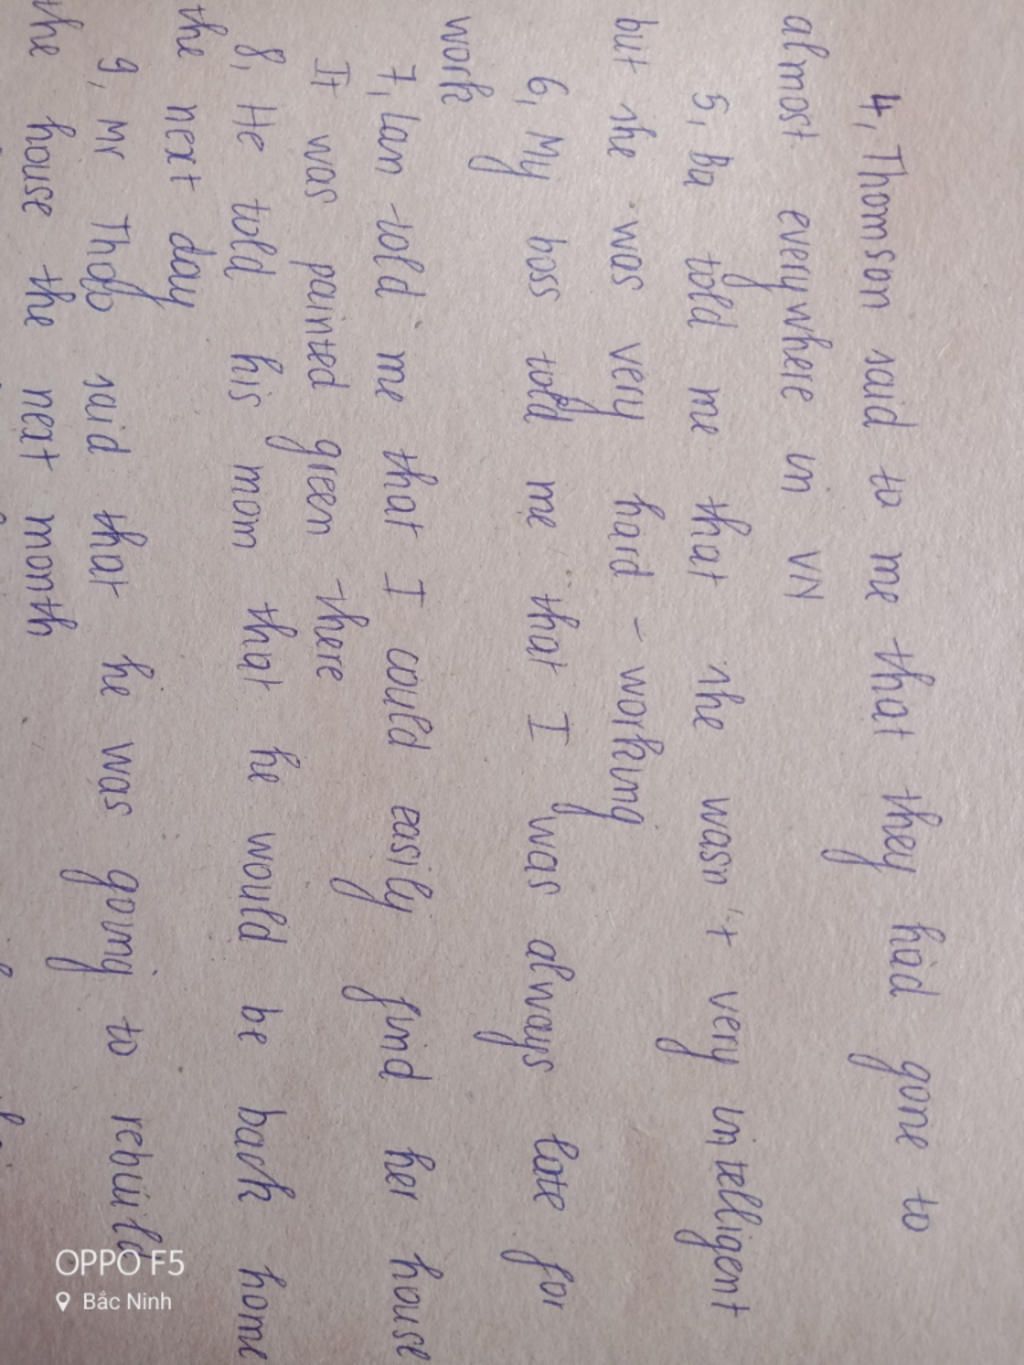 4, Thomson said to me that they had gone to
almost everywhere in VN
5, ba told me that she wasn't very intelligent
but she was very hard - working
6, My boss told me that I was always late for
work
7, lan told me that I could easily find her house
It was painted green there
8, He told his mom that he would be back home
the next day
9, Mr Thảo said that he was going to rebuild
the house the next month
OPPO F5
Bắc Ninh